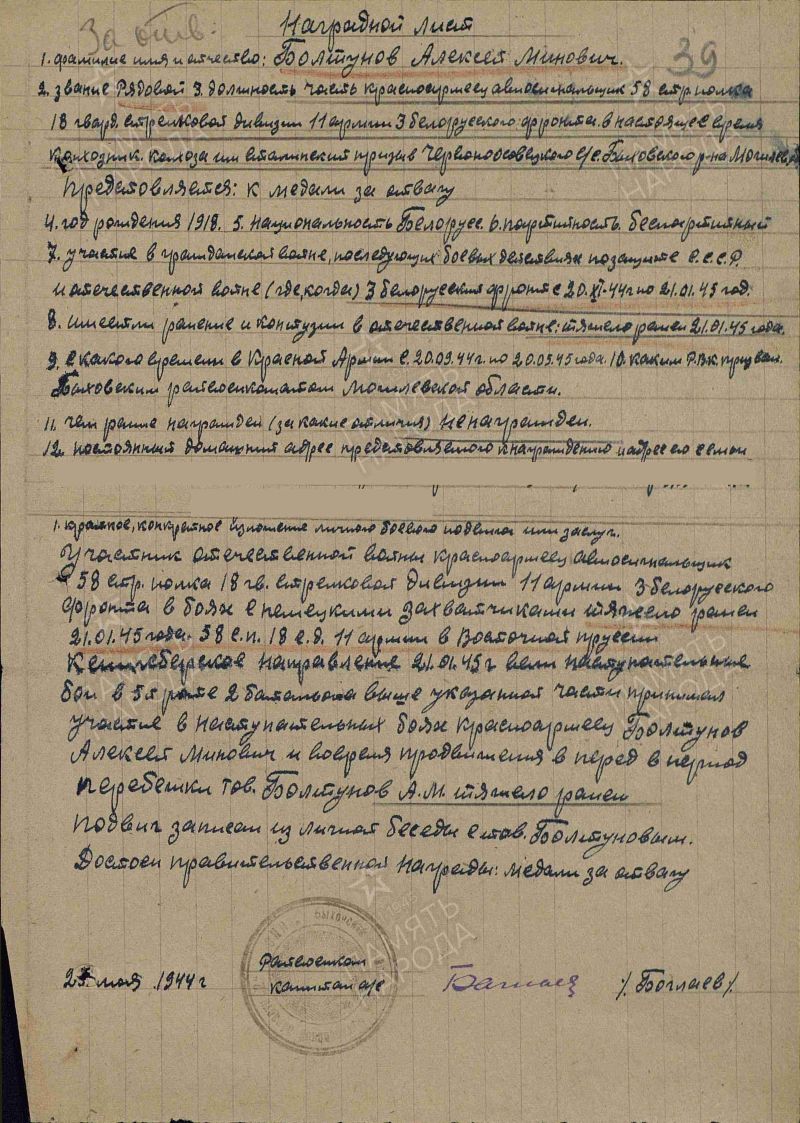 За отв.
39
Наградной лист
1. фамилие имя и отчество: Болтунов Алексей Минович.
2. звание Рядовой 3. должность часть красноармеец авиосигнальщик 58 стр. полка
18 гвард. стрелковой дивизии 11 армии 3 белорусского фронта. в настоящее время
колхозник. колхоза им сталинский призыв Червоноосовецкого с/с. Быховского р-на Могилев
Предстовляется: к медали за отвагу
4. год рождения 1918. 5. Национальность Белорусс. 6. партийность. беспартийный
7. участие в гражданской войне, последующих боевых действиях по защите С.С.С.Р.
и отечественной войне (где, когда) 3 белорусский фронт с 20.XI-44г по 21.01.45 год.
8. имеет ли ранение и контузии в отечественной войне: тяжело ранен 21.01.45 года.
9. с какого времени в Красной Армии с. 20.09.44г. по 20.05.45 года. 10. каким Р.В.К. призван.
Быховским райвоенкоматом Могилевской области.
11. чем ранее награжден (за какие отличия) не награжден.
12. постоянный домашний адрес предстовляемого к награждению и адрес его семьи
1. краткое, конкретное изложение личного боевого подвига или заслуг.
Участник отечественной войны красноармеец авиосигнальщик
58 стр. полка 18 гв. стрелковой дивизии 11 армии 3 белорусского
фронта в боях с немецкими захватчиками тяжело ранен
21.01.45 года. 58 с.п. 18 с.д. 11 армии в Восточной пруссии
направление 21.01.45 г вели наступательные
бои в 5й роте 2 батальона выше указанной части принимал
участие в наступательных боях красноармеец Болтунов
Алексей Минович и вовремя продвижения в перед в период
перебежки тов. Болтунов А.М. тяжело ранен
Подвиг записан из личной беседы с тов. Болтуновым.
Достоен правительственной награды: медали за отвагу
мая 1944 г
Райвоенком
капитан а/с
/. Боглаев /.
ПАМЯТЬ НАРОДА